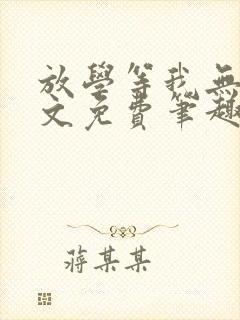 放學等我無
文免費筆趣
蔣某某